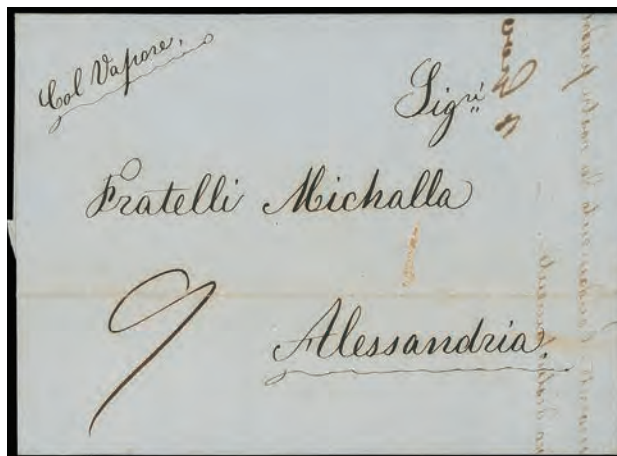 Col Vapore,
Sigri
Fratelli Michalla
9
Alessandria.